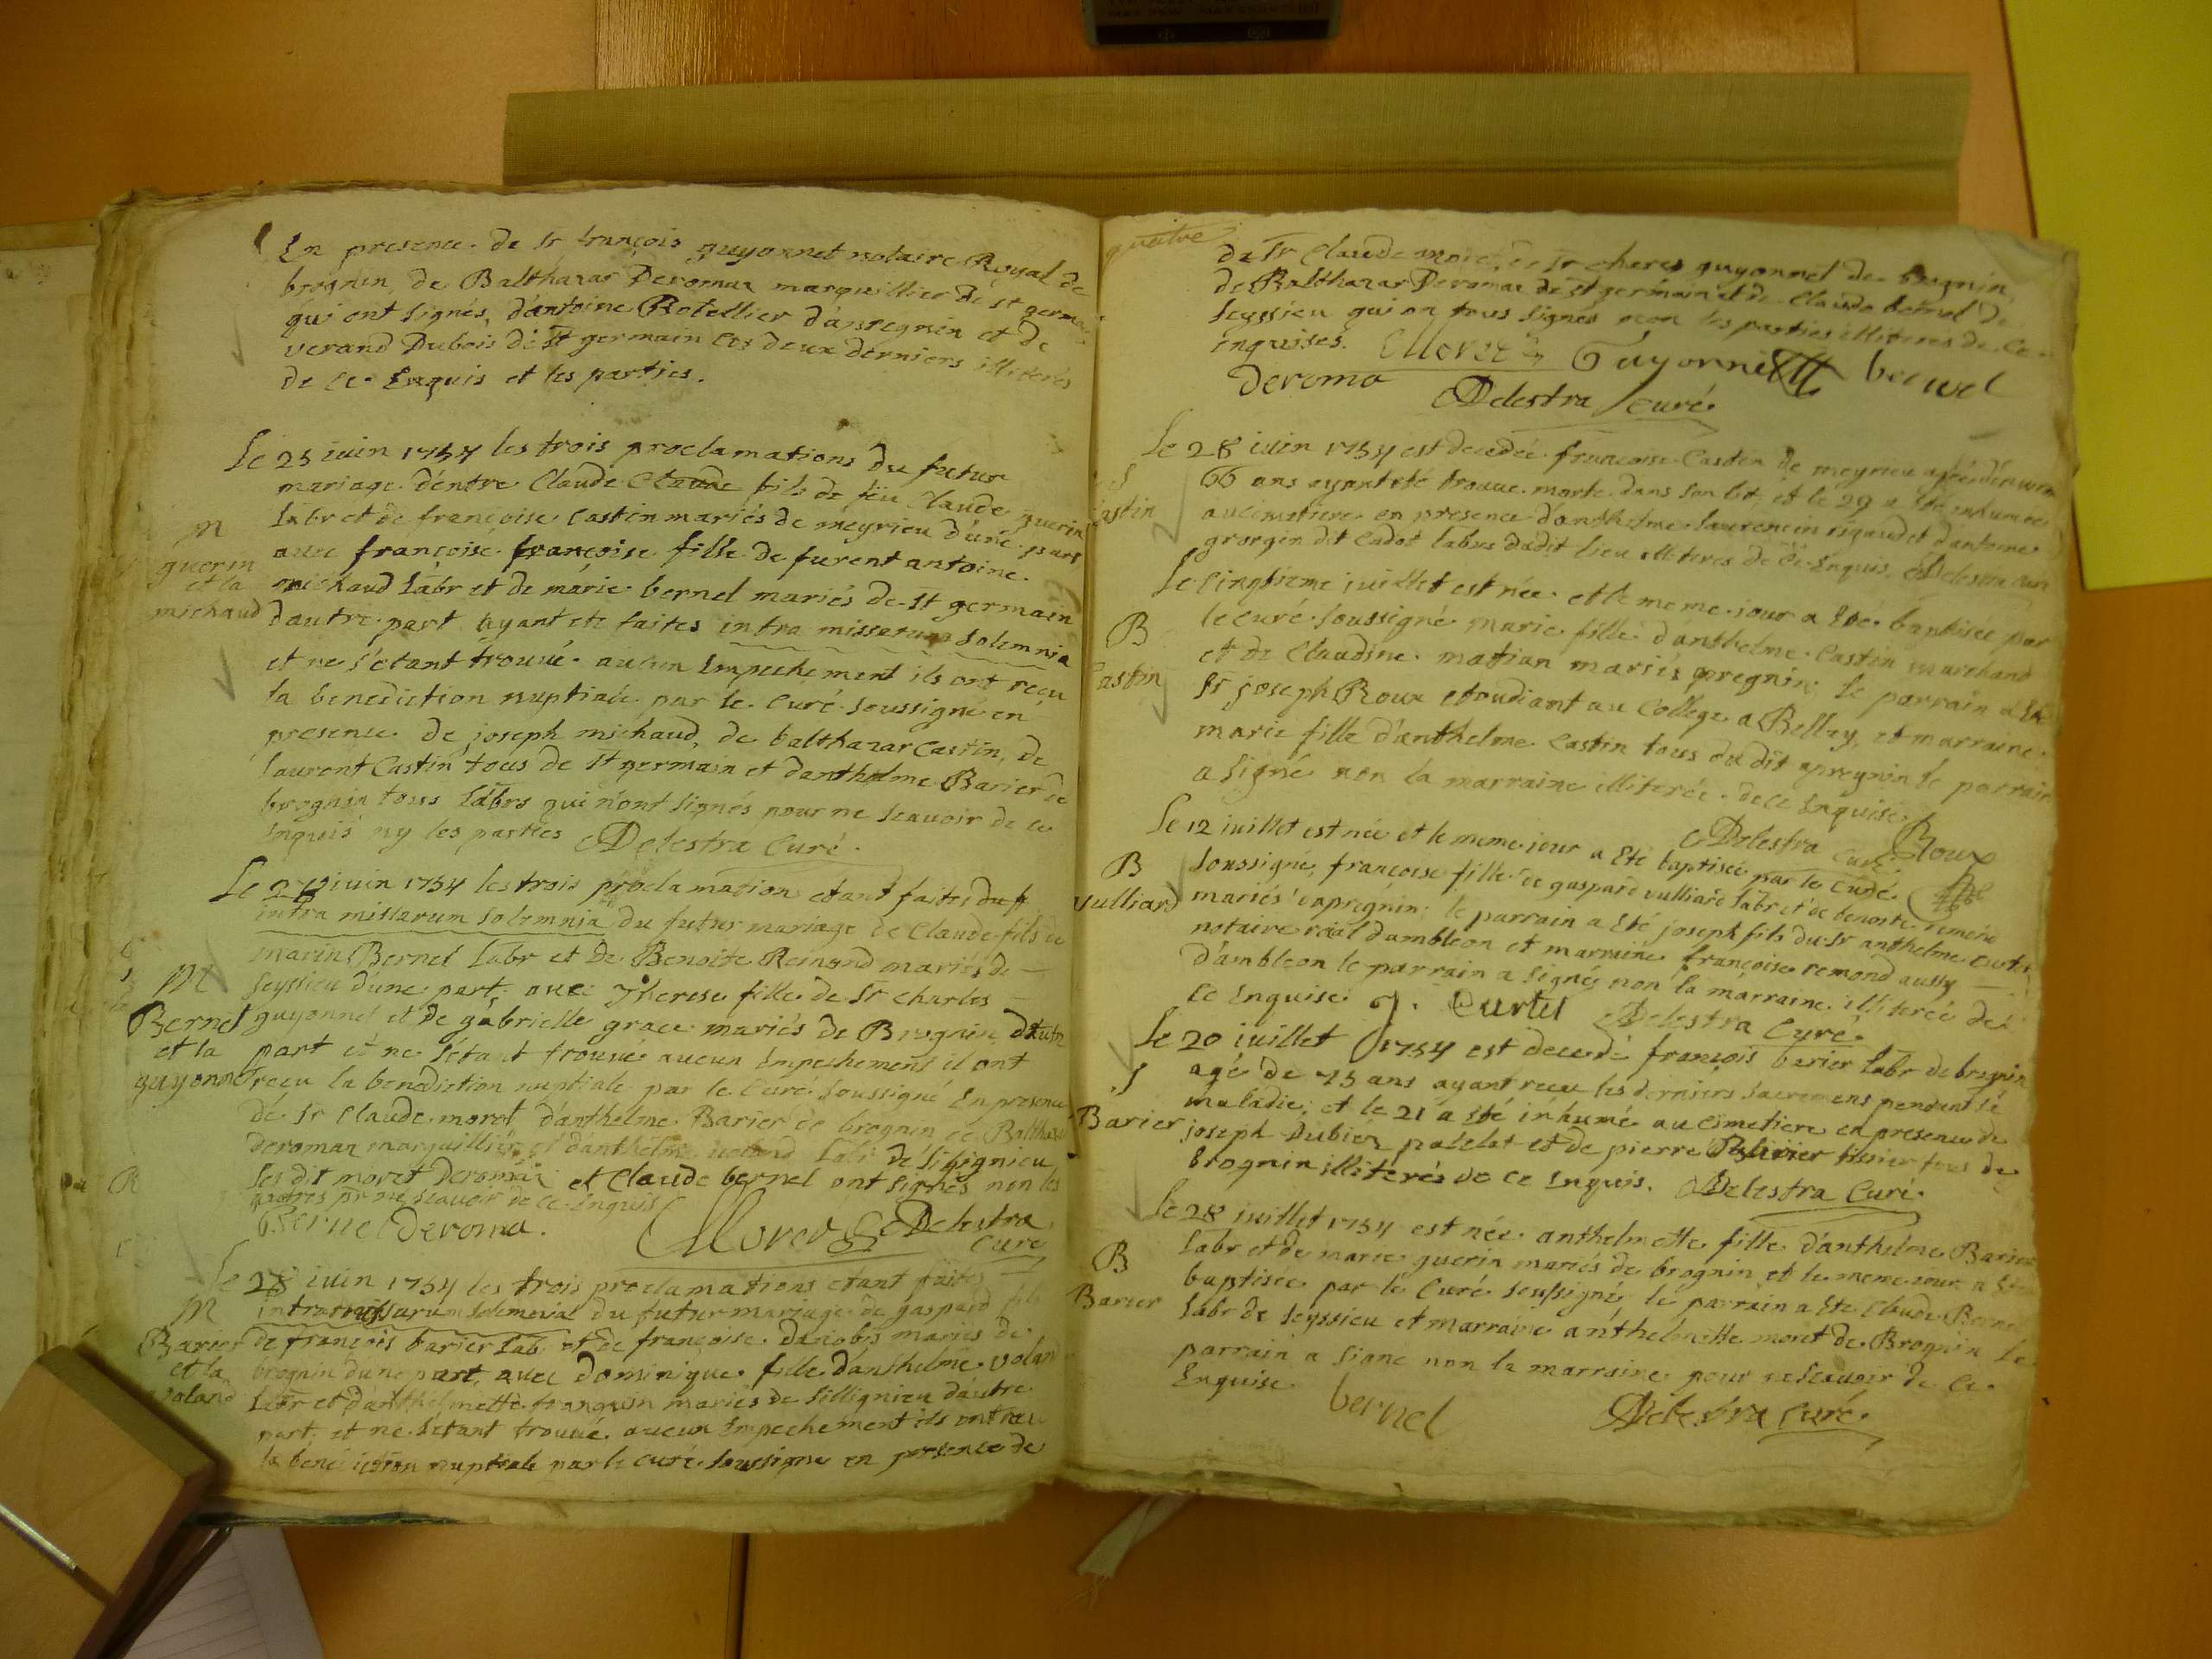 En presence de Sr françois guyonnet notaire Royal de
brognin, de Balthazar Deromaz marquillier de St germain
qui ont signés, d'antoine Botellier d'apregnin et de
verand Dubois de St germain les deux derniers illiterés
de ce Enquis et les parties.
Le 25 iuin 1754 les trois proclamations du futur
mariage d'entre Claude Claude fils de feu Claude guerin
labr et de françoise Castin mariés de meyrieu d'une part
avec françoise françoise fille de furent antoine
michaud labr et de marie bernel mariés de St germain
dautre part ayant ete faites intra missarum solemnia
et ne s'etant trouvé aucun Empechement ils ont recu
la benediction nuptiale par le Curé soussigné en
presence de joseph michaud, de balthazar Castin, de
laurent Castin tous de St germain et danthelme Barier de
brognin tous labrs qui n'ont signés pour ne scauoir de ce
Enquis ny les parties Delestra Curé.
M
guerin
et la
michaud
Le 27 iuin 1754 les trois proclamations etant faites
intra missarum solemnia du futur mariage de Claude fils de
marin Bernel labr et De Benoite Remond mariés de
seyssieu d'une part avec Therese fille de Sr Charles
guyonnet et de gabrielle grace mariés de Brognin Dautre
part et ne s'étant trouvé aucun Empechement il ont
reçu la benediction nuptiale par le Curé soussigné En presence
de Sr Claude moret, d'anthelme Barier de brognin de Balthazar
deromaz marquillier et danthelme voland labr de silignieu
les dit moret Deromaz et Claude bernel ont signés non les
autres pr ne scauoir de ce Enquis
Bernel Deroma. Moret Delestra
Curé
M
Bernel
et la
guyonnet
Le 28 iuin 1754 les trois proclamations etant faites
intra missarum solemnia du futur mariage de gaspard fils
de françois barier lab. et de françoise mariés de
brognin dune part avec Dominique fille d'anthelme voland
labr et d'anthelmette mariés de sillignieu dautre
part et ne s'etant trouvé aucun Empechement ils ont recu
la bénédiction nuptiale par le curé soussigné en presence de
M
Barier
et la
voland
quatre
de Sr Claude moret, de Sr guyonnet de brognin,
de Balthazar Deromaz de St germain et de Claude bernel de
seyssieu qui on tous signés non les parties illiterées de ce
enquises. Moret Guyonnet bernel
Deroma Delestra Curé
Le 28 iuin 1754 est decedée françoise Castin de meyrieu agée d'environ
66 ans ayant eté trouve morte dans son lit, et le 29 a eté inhumée
au cimetiere en presence d'anthelme laurencin rigaud et d'antoine
grorgin dit Cadot labrs dudit lieu illiteres de ce Enquis. Delestra Curé
S
Castin
Le Cinqüieme iuillet est née et le meme iour a Eté baptisée par
le curé soussigné marie fille d'anthelme Castin marchand
et de Claudine matian mariés apregnin; le parrain a Eté
Sr joseph Roux etoudiant au College a Belley, et marraine
marie fille d'anthelme Castin tous du dit apregnin le parrain
a signé non la marraine illiterée de ce Enquise.
Delestra Curé Roux
B
Castin
Le 12 iuillet est née et le meme iour a Eté baptisée par le Curé
soussigné, françoise fille de gaspard vulliard labr et de benoite remond
mariés d'apregnin; le parrain a eté joseph fils du Sr anthelme Curtil
notaire roial d'ambleon et marraine françoise remond aussy
d'ambleon le parrain a signé non la marraine illiterée de
ce Enquise. J. Curtil Delestra Curé.
B
vulliard
Le 20 iuillet 1754 est decedé françois barier labr de brognin
agé de 75 ans ayant recu les derniers sacremens pendant sa
maladie, et le 21 a eté inhumé au cimetiere en presence de
joseph Dubier et de pierre tissier tous de
brognin illiterés de ce Enquis. Delestra Curé.
S
Barier
Le 28 iuillet 1754 est née anthelmette fille d'anthelme Barier
labr et de marie guerin mariés de brognin et le meme iour a Eté
baptisée par le Curé soussigné, le parrain a Eté Claude Bernel
labr de seyssieu et marraine anthelmette moret de Brognin le
parrain a signé non la marraine pour ne scauoir de ce
Enquise. bernel Delestra Curé.
B
Barier